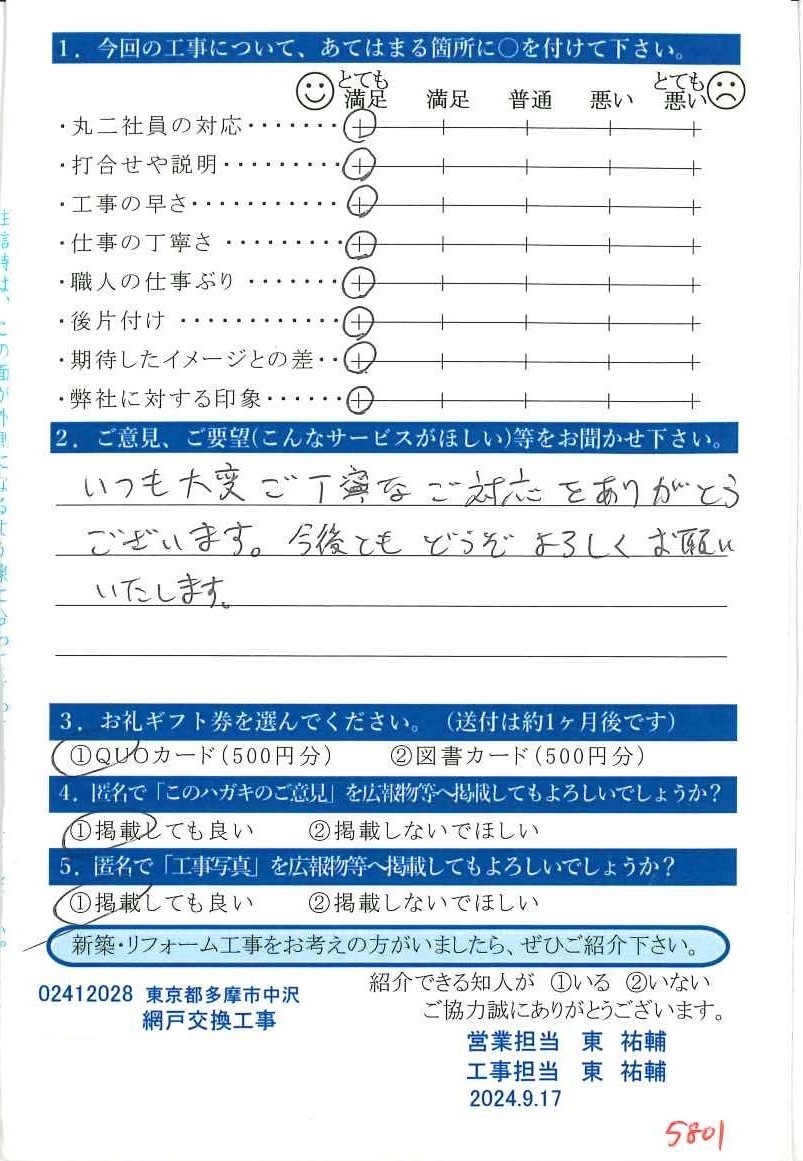 1．今回の工事について、あてはまる箇所に○を付けて下さい。
とても満足 満足 普通 悪い とても悪い
・丸二社員の対応・・・・・・・
・打合せや説明・・・・・・・・・
・工事の早さ・・・・・・・・・・・
・仕事の丁寧さ・・・・・・・・・
・職人の仕事ぶり・・・・・・・
・後片付け・・・・・・・・・・・・
・期待したイメージとの差・・
・弊社に対する印象・・・・・・
2．ご意見、ご要望(こんなサービスがほしい)等をお聞かせ下さい。
いつも大変ご丁寧なご対応をありがとう
ございます。今後ともどうぞよろしくお願い
いたします。
3．お礼ギフト券を選んでください。（送付は約1ヶ月後です）
①QUOカード(500円分) ②図書カード(500円分)
4．匿名で「このハガキのご意見」を広報物等へ掲載してもよろしいでしょうか?
①掲載しても良い ②掲載しないでほしい
5．匿名で「工事写真」を広報物等へ掲載してもよろしいでしょうか?
①掲載しても良い ②掲載しないでほしい
新築・リフォーム工事をお考えの方がいましたら、ぜひご紹介下さい。
紹介できる知人が ①いる ②いない
ご協力誠にありがとうございます。
02412028 東京都多摩市中沢
網戸交換工事
営業担当 東 祐輔
工事担当 東 祐輔
2024.9.17
5801